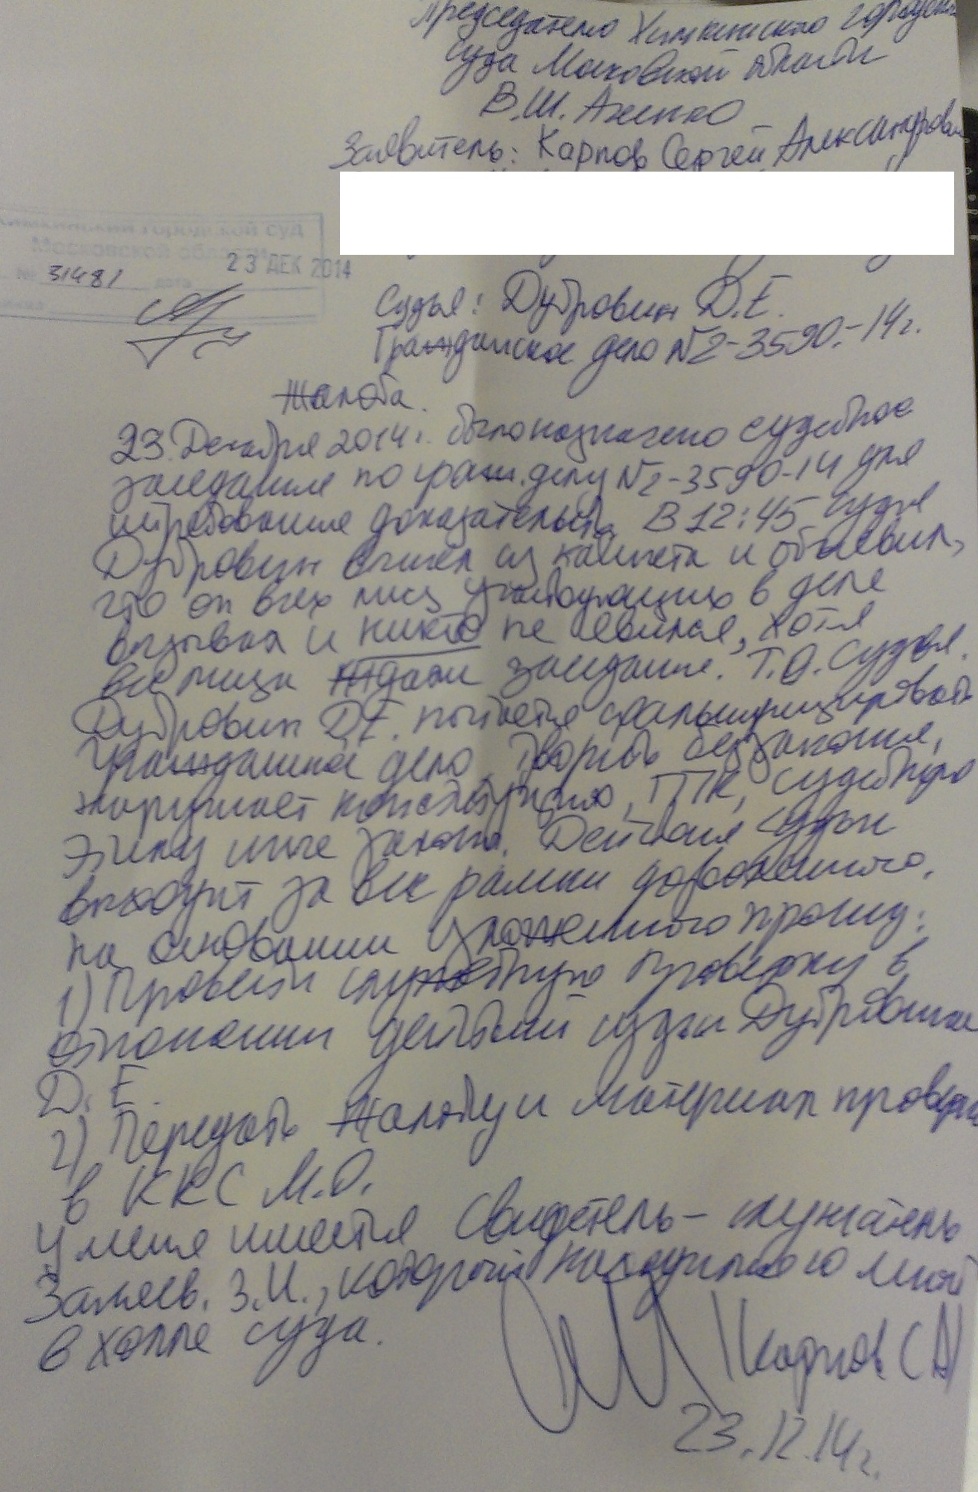 Председателю Химкинского городск
суда Московской области
В.Ш. Аненко
Заявитель: Карпов Сергей Александрович
Химкинский городской суд
Московской области
№ 31481 дата 23 ДЕК 2014
Судья: Дубровин Д.Е.
Гражданское дело №2-3590-14г.
Жалоба.
23 Декабря 2014г. было назначено судебное
заседание по граж. делу №2-3590-14 для
истребования доказательств. В 12:45 судья
Дубровин вышел из кабинета и объявил,
что он всех лиц участвующих в деле
вызывал и никто не явился, хотя
все лица ждали заседание. Т.О. судья
Дубровин Д.Е. пытается сфальсифицировать
гражданское дело, творить беззаконие,
нарушает конституцию, ГПК, судебную
этику и закона. Действия судьи
выходят за все рамки дозволенного.
На основании изложенного прошу:
1) Провести служебную проверку в
отношении действий судьи Дубровина
Д.Е.
2) Передать жалобу и материал проверки
в ККС М.О.
У меня имеется свидетель – слушатель
З.И., который находился со мной
в холле суда.
Карпов СА
23.12.14г.